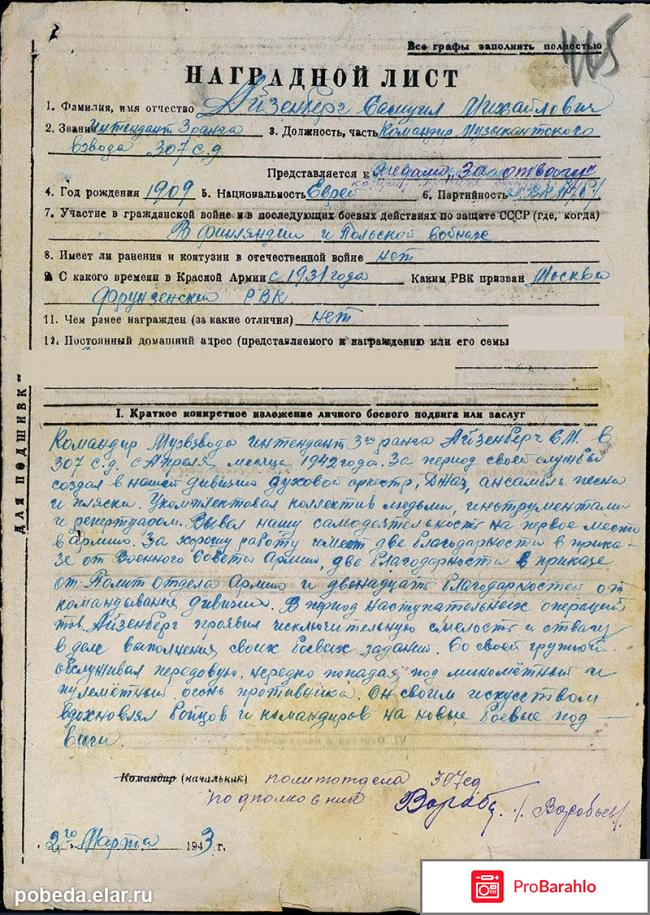 Все графы заполнять полностью
445
НАГРАДНОЙ ЛИСТ
1. Фамилия, имя отчество Айзенберг Самуил Михайлович
2. Звание Интендант 3 ранга 3. Должность, часть Командир Музыкантского
взвода 307 с.д.
Представляется к медали „За отвагу“
4. Год рождения 1909 5. Национальность Еврей 6. Партийность
7. Участие в гражданской войне и в последующих боевых действиях по защите СССР (где, когда)
В финляндии и Польской войнах
8. Имеет ли ранения и контузии в отечественной войне нет
9. С какого времени в Красной Армии с 1931 года Каким РВК призван Москва
Фрунзенский РВК
11. Чем ранее награжден (за какие отличия) нет
12. Постоянный домашний адрес (представляемого к награждению или его семьи
I. Краткое конкретное изложение личного боевого подвига или заслуг
Командир Музвзвода интендант 3го ранга Айзенберг С.М. в
307 с.д. с Апреля месяца 1942 года. За период своей службы
создал в нашей дивизии духовой оркестр, Джаз, ансамбль песни
и пляски. Укомплектовал коллектив людьми, инструментами
и репертуаром. Вывел нашу самодеятельность на первое место
в армии. За хорошую работу имеет две благодарности в прика-
зе от Военного Совета Армии, две благодарности в приказе
от Полит отдела Армии и двенадцать благодарностей от
командования дивизии. В период наступательных операций
тов. Айзенберг проявил исключительную смелость и отвагу
в деле выполнения своих боевых заданий. Со своей группой
обслуживал передовую, нередко попадая под миномётный и
пулеметный огонь противника. Он своим искусством
вдохновлял бойцов и командиров на новые боевые под-
виги.
Командир (начальник) политотдела 307 сд
подполковник Вороб /Воробьев/
2го Марта 1943 г.
ДЛЯ ПОДШИВКИ
pobeda.elar.ru
ProBarahlo